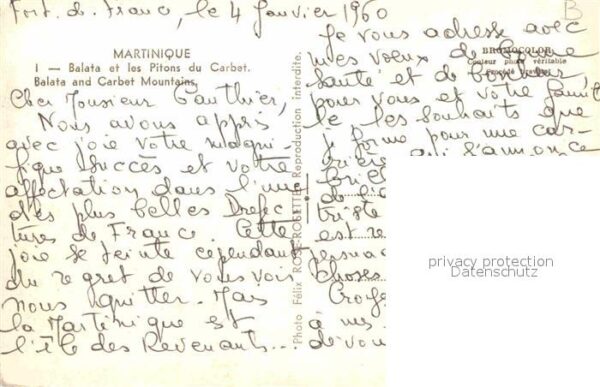 Fort-de-France, le 4 Janvier 1960
B
MARTINIQUE
1 — Balata et les Pitons du Carbet.
Balata and Carbet Mountains.
Cher Monsieur Gauthier,
Nous avons appris
avec joie votre magni-
fique succès et votre
affectation dans l'une
des plus belles Préfec
tures de France. Cette
joie se teinte cependant
du regret de vous voir
nous quitter. Mais
la Martinique est
l'île des Revenants...
Photo Félix ROSE-ROSETTE Reproduction interdite.
BROMOCOLOR
Couleur photo véritable
Procédé breveté
Je vous adresse avec
mes voeux de bonne
santé et de bonheur,
pour vous et votre famil
le les souhaits que
je forme pour une car-
rière qui s'annonce
de
triste
est
choses
à mes
dévou
privacy protection
Datenschutz